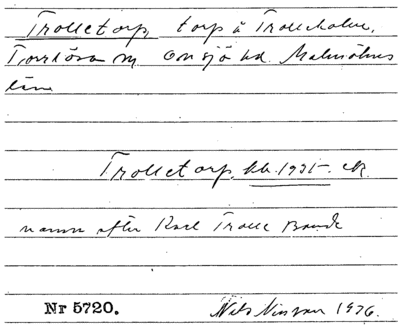 Trolletorp, torp å Trolleholm,
Torrlösa sn Onsjö hd. Malmöhus
län
Trolletorp. kb. 1915-
namn efter Karl Trolle Bonde
Nr 5720. Nils Ninsson 1926.